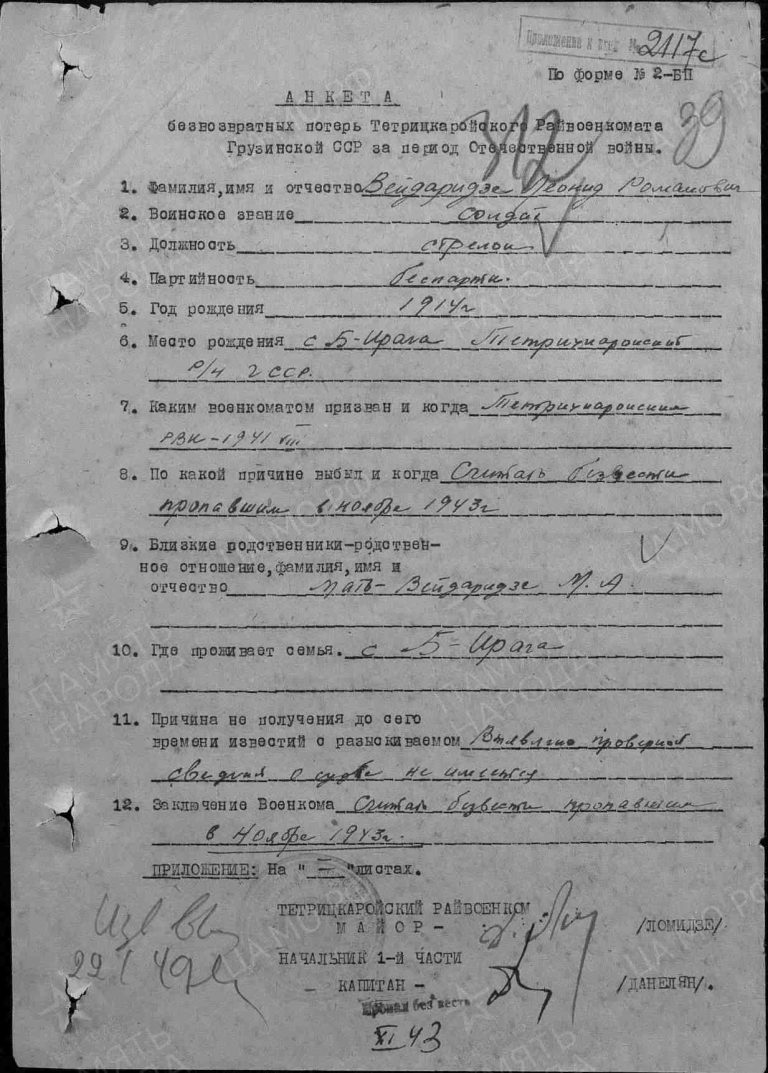 Приложение к вход. № 2117с
По форме № 2-БП
АНКЕТА
312
39
безвозвратных потерь Тетрицкаройского Райвоенкомата
Грузинской ССР за период Отечественной войны.
1. Фамилия,имя и отчество Вейдаридзе Леонид Романович
2. Воинское звание солдат
3. Должность стрелок
4. Партийность беспарти.
5. Год рождения 1914г
6. Место рождения с Б-Ирага Тетрицкаройский
р/н ГССР.
7. Каким военкоматом призван и когда Тетрицкаройским
РВК-1941 VIII
8. По какой причине выбыл и когда Считать безвести
пропавшим в ноябре 1943г
9. Близкие родственники-родствен-
ное отношение,фамилия,имя и
отчество Мать- Вейдаридзе М. А.
10. Где проживает семья. с Б-Ирага
11. Причина не получения до сего
времени известий о разыскиваемом проверкой
сведения о судьбе не имеется
12. Заключение Военкома Считать безвести пропавшим
в ноябре 1943г.
ПРИЛОЖЕНИЕ: На " — "листах.
ТЕТРИЦКАРОЙСКИЙ РАЙВОЕНКОМ
МАЙОР - /ЛОМИДЗЕ/
НАЧАЛЬНИК 1-й ЧАСТИ
- КАПИТАН - /ДАНЕЛЯН/.
Пропал без вести
XI 43